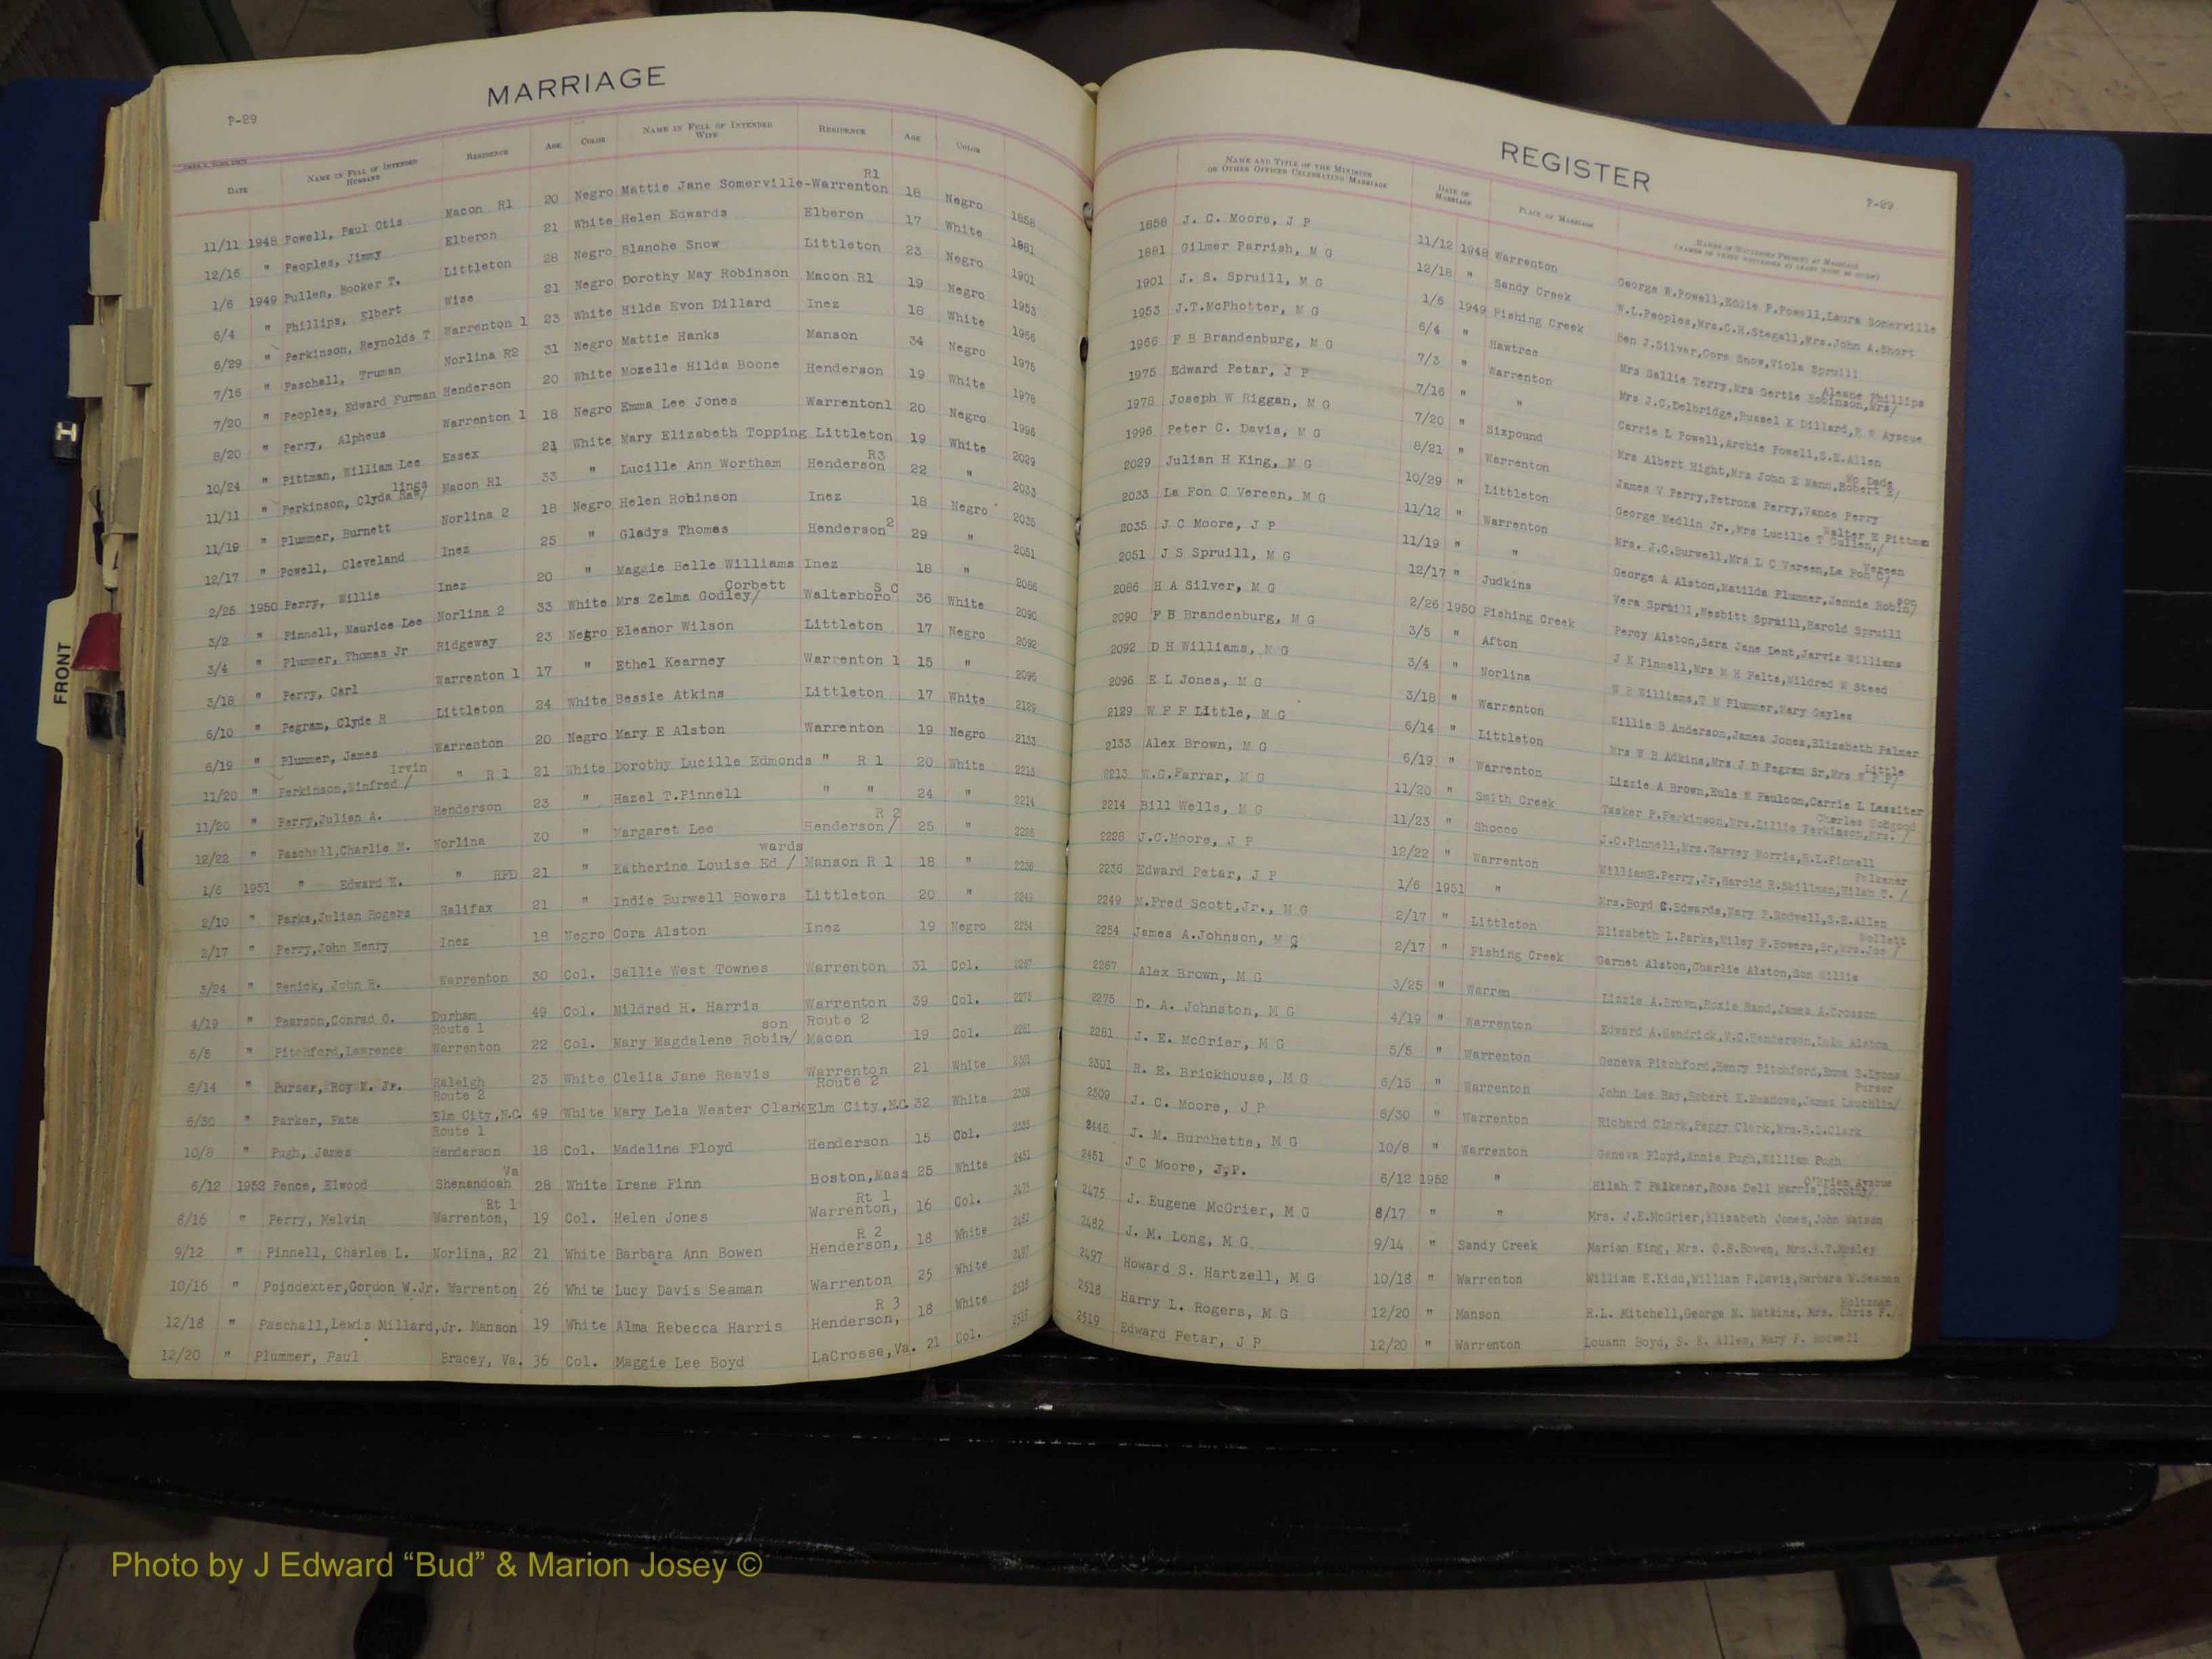 MARRIAGE
P-29
DATE NAME IN FULL OF INTENDED HUSBAND RESIDENCE AGE COLOR NAME IN FULL OF INTENDED WIFE RESIDENCE AGE COLOR
11/11 1948 Powell, Paul Otis Macon R1 20 Negro Mattie Jane Somerville-Warrenton R1 18 Negro 1858
12/16 " Peoples, Jimmy Elberon 21 White Helen Edwards Elberon 17 White 1881
1/6 1949 Pullen, Booker T. Littleton 28 Negro Blanche Snow Littleton 23 Negro 1901
6/4 " Phillips, Elbert Wise 21 Negro Dorothy May Robinson Macon R1 19 Negro 1953
6/29 " Perkinson, Reynolds T Warrenton 1 23 White Hilda Evon Dillard Inez 18 White 1966
7/16 " Paschall, Truman Norlina R2 31 Negro Mattie Hanks Manson 34 Negro 1975
7/20 " Peoples, Edward Furman Henderson 20 White Mozelle Hilda Boone Henderson 19 White 1978
8/20 " Perry, Alpheus Warrenton 1 18 Negro Emma Lee Jones Warrenton1 20 Negro 1996
10/24 " Pittman, William Lee Essex 21 White Mary Elizabeth Topping Littleton 19 White 2029
11/11 " Perkinson, Clyda Raw/lings Macon R1 33 " Lucille Ann Wortham Henderson R3 22 " 2033
11/19 " Plummer, Burnett Norlina 2 18 Negro Helen Robinson Inez 18 Negro 2035
12/17 " Powell, Cleveland Inez 25 " Gladys Thomas Henderson 2 29 " 2051
2/25 1950 Perry, Willie Inez 20 " Maggie Belle Williams Inez 18 " 2086
3/2 " Pinnell, Maurice Lee Norlina 2 33 White Mrs Zelma Godley/ Corbett Walterboro S C 36 White 2090
3/4 " Plummer, Thomas Jr Ridgeway 23 Negro Eleanor Wilson Littleton 17 Negro 2092
3/18 " Perry, Carl Warrenton 1 17 " Ethel Kearney Warrenton 1 15 " 2096
6/10 " Pegram, Clyde R Littleton 24 White Bessie Atkins Littleton 17 White 2129
6/19 " Plummer, James Warrenton 20 Negro Mary E Alston Warrenton 19 Negro 2133
11/20 " Perkinson,Winfred / Irvin " R 1 21 White Dorothy Lucille Edmonds " R 1 20 White 2213
11/20 " Perry,Julian A. Henderson 23 " Hazel T.Pinnell " " 24 " 2214
12/22 " Paschall,Charlie M. Norlina 30 " Margaret Lee Henderson / R 2 25 " 2228
1/6 1951 " Edward H. " RFD 21 " Katherine Louise Ed / wards Manson R 1 18 " 2236
2/10 " Parks,Julian Rogers Halifax 21 " Indie Burwell Bowers Littleton 20 " 2249
2/17 " Perry,John Henry Inez 18 Negro Cora Alston Inez 19 Negro 2254
3/24 " Penick, John H. Warrenton 30 Col. Sallie West Townes Warrenton 31 Col. 2267
4/19 " Pearson,Conrad O. Durham 49 Col. Mildred H. Harris Warrenton 39 Col. 2275
5/5 " Pitchford,Lawrence Route 1 Warrenton 22 Col. Mary Magdalene Robin/ son Route 2 Macon 19 Col. 2281
6/14 " Purser, Roy M. Jr. Raleigh 23 White Clelia Jane Reavis Warrenton 21 White 2301
6/30 " Parker, Fate Route 2 Elm City,N.C. 49 White Mary Lela Wester Clark Route 2 Elm City,N.C. 32 White 2309
10/8 " Pugh, James Route 1 Henderson 18 Col. Madeline Floyd Henderson 15 Col. 2335
6/12 1952 Pence, Elwood Shenandoah Va 28 White Irene Finn Boston,Mass 25 White 2451
8/16 " Perry, Melvin Warrenton, Rt 1 19 Col. Helen Jones Warrenton, Rt 1 16 Col. 2475
9/12 " Pinnell, Charles L. Norlina, R2 21 White Barbara Ann Bowen Henderson, R 2 18 White 2482
10/16 " Poindexter,Gordon W.Jr. Warrenton 26 White Lucy Davis Seaman Warrenton 25 White 2497
12/18 " Paschall,Lewis Millard,Jr. Manson 19 White Alma Rebecca Harris Henderson, R 3 18 White 2518
12/20 " Plummer, Paul Bracey, Va. 36 Col. Maggie Lee Boyd LaCrosse,Va. 21 Col. 2519
REGISTER
P-29
NAME AND TITLE OF THE MINISTER OR OTHER OFFICER CELEBRATING MARRIAGE DATE OF MARRIAGE PLACE OF MARRIAGE NAMES OF WITNESSES PRESENT AT MARRIAGE
1858 J. C. Moore, J P 11/12 1948 Warrenton George W.Powell,Eddie P.Powell,Laura Somerville
1881 Gilmer Parrish, M G 12/18 " Sandy Creek W.L.Peoples,Mrs.C.H.Stegall,Mrs.John A.Short
1901 J. S. Spruill, M G 1/6 1949 Fishing Creek Ben J.Silver,Cora Snow,Viola Spruill
1953 J.T.McPhotter, M G 6/4 " Hawtree Mrs Sallie Terry,Mrs Gertie Robinson,Mrs/ Aleane Phillips
1966 F B Brandenburg, M G 7/3 " Warrenton Mrs J.C.Delbridge,Russel K Dillard,H W Ayscue
1975 Edward Petar, J P 7/16 " " Carrie L Powell,Archie Powell,S.E.Allen
1978 Joseph W Riggan, M G 7/20 " Sixpound Mrs Albert Hight,Mrs John E Mann,Robert E/ Mc Dade
1996 Peter C. Davis, M G 8/21 " Warrenton James V Perry,Petrona Perry,Vance Perry
2029 Julian H King, M G 10/29 " Littleton George Medlin Jr.,Mrs Lucille T Cullen,/ Walter E Pittman
2033 La Fon C Vereen, M G 11/12 " Warrenton Mrs. J.C.Burwell,Mrs L C Vereen,La Fon C/ Vereen
2035 J C Moore, J P 11/19 " " George A Alston,Matilda Plummer,Jennie Robin/ son
2051 J S Spruill, M G 12/17 " Judkins Vera Spruill,Nesbitt Spruill,Harold Spruill
2086 H A Silver, M G 2/26 1950 Fishing Creek Percy Alston,Sara Jane Dent,Jarvis Williams
2090 F B Brandenburg, M G 3/5 " Afton J K Pinnell,Mrs M H Felts,Mildred W Steed
2092 D H Williams, M G 3/4 " Norlina W B Williams,T M Plummer,Mary Gayles
2096 E L Jones, M G 3/18 " Warrenton Willie B Anderson,James Jones,Elizabeth Palmer
2129 W F F Little, M G 6/14 " Littleton Mrs W B Adkins,Mrs J D Pegram Sr,Mrs W F F/ Little
2133 Alex Brown, M G 6/19 " Warrenton Lizzie A Brown,Eula M Faulcon,Carrie L Lassiter
2213 W.G.Farrar, M G 11/20 " Smith Creek Tasker P.Perkinson,Mrs.Lillie Perkinson,Mrs. / Charles
2214 Bill Wells, M G 11/23 " Shocco J.C.Pinnell,Mrs.Harvey Morris,H.L.Pinnell
2228 J.C.Moore, J P 12/22 " Warrenton WilliamH.Perry,Jr,Harold R.Skillman,Hilah T. / Falkener
2236 Edward Petar, J P 1/6 1951 " Mrs.Boyd C.Edwards,Mary F.Rodwell,S.E.Allen
2249 M.Fred Scott,Jr., M G 2/17 " Littleton Elizabeth L.Parks,Wiley P.Bowers,Sr,Mrs.Joe /
2254 James A.Johnson, M G 2/17 " Fishing Creek Garnet Alston,Charlie Alston,Son Willie
2267 Alex Brown, M G 3/25 " Warren Lizzie A.Brown,Roxie Hand,James A.Crosson
2275 D. A. Johnston, M G 4/19 " Warrenton Edward A.Hendrick,V.C.Henderson,Lula Alston
2281 J. E. McGrier, M G 5/5 " Warrenton Geneva Pitchford,Henry Pitchford,Emma S.Lyons
2301 R. E. Brickhouse, M G 6/15 " Warrenton John Lee Ray,Robert K.Meadows,James Lauchlin/ Purser
2309 J. C. Moore, J P 6/30 " Warrenton Richard Clark,Peggy Clark,Mrs.R.L.Clark
2446 J. M. Burchette, M G 10/8 " Warrenton Geneva Floyd,Annie Pugh,William Pugh
2451 J C Moore, J.P. 6/12 1952 " Hilah T Falkener,Rosa Dell Harris,Dorothy/ O'Brien Ayscue
2475 J. Eugene McGrier, M G 8/17 " " Mrs. J.E.McGrier,Elizabeth Jones,John Watson
2482 J. M. Long, M G 9/14 " Sandy Creek Marian King, Mrs. O.S.Bowen, Mrs.E.T.Mosley
2497 Howard S. Hartzell, M G 10/18 " Warrenton William E.Kidd,William P.Davis,Barbara W.Seaman
2518 Harry L. Rogers, M G 12/20 " Manson R.L. Mitchell,George N. Watkins, Mrs. Chris F./ Holtzman
2519 Edward Petar, J P 12/20 " Warrenton Louann Boyd, S. E. Allen, Mary F. Rodwell
FRONT
H
Photo by J Edward “Bud” & Marion Josey ©